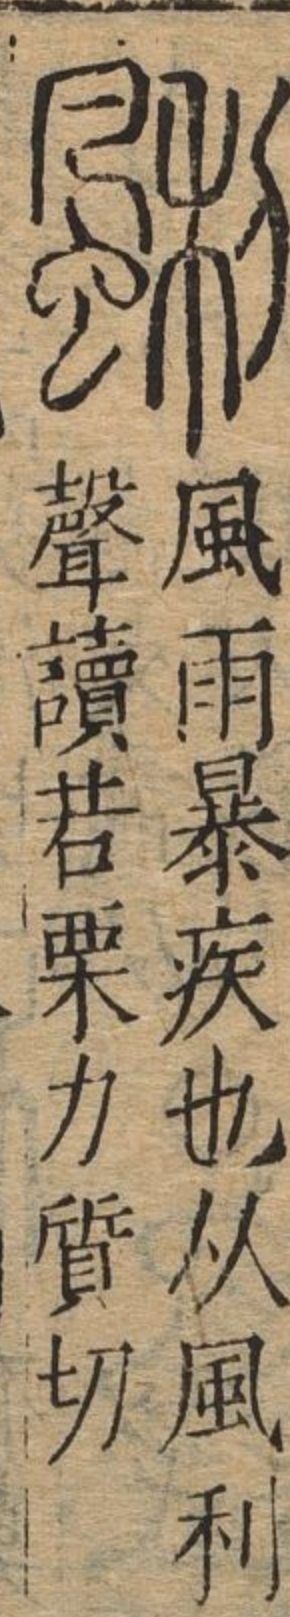 䬆
風雨暴疾也从風利
聲讀若栗力質切